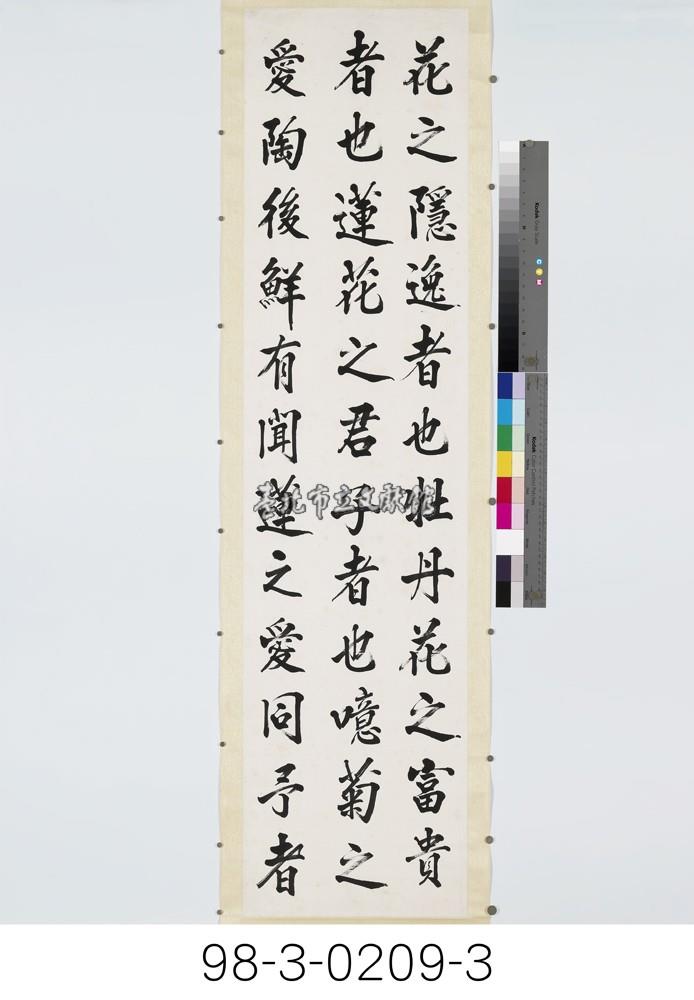 花之隱逸者也牡丹花之富貴
者也蓮花之君子者也噫菊之
愛陶後鮮有聞蓮之愛同予者
臺北市立文獻館
Kodak Gray Scale
C Y M
Kodak Color Control Patches
98-3-0209-3